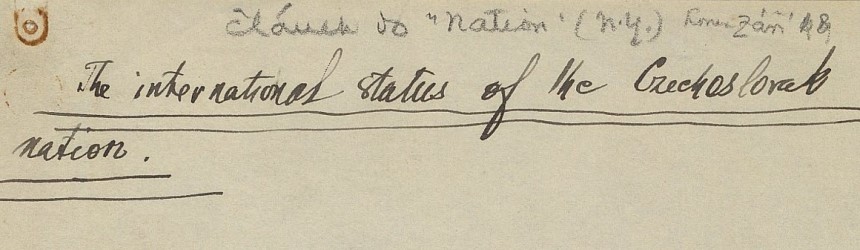 článek do "Nation" (N.Y.) konec Září 18
The international status of the Czechoslovak
nation.